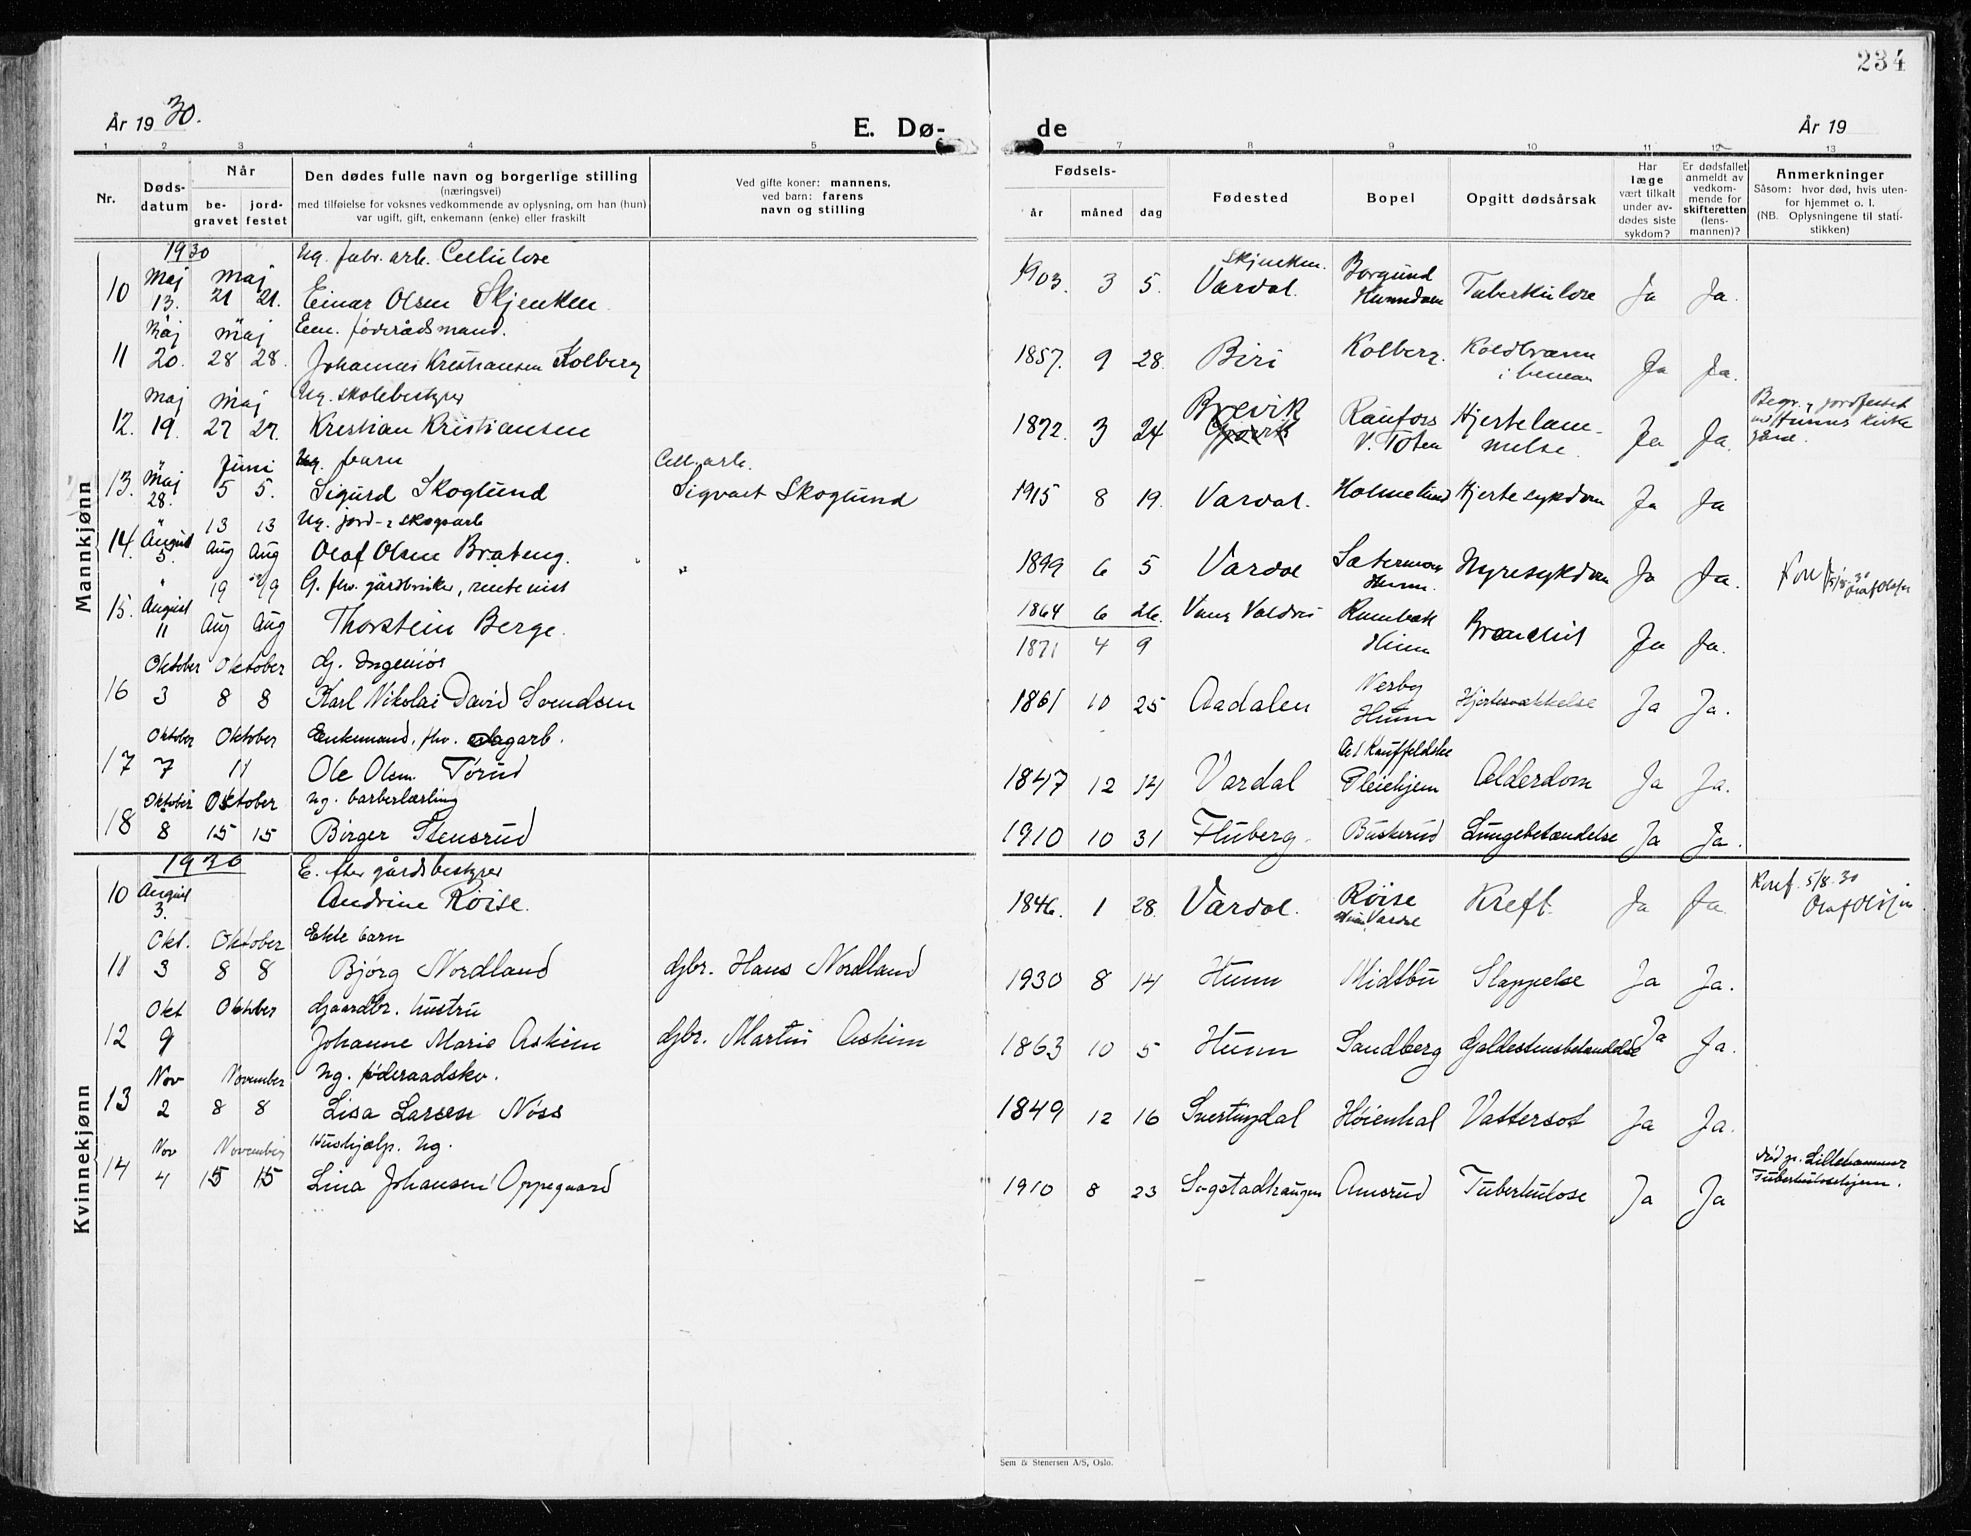 234
År 1930.
E. Dø-
de
År 19
1 2 3 4 5 7 8 9 10 11 12 13
Nr.
Døds-
datum
Når
be-
gravet
jord-
festet
Den dødes fulle navn og borgerlige stilling
(næringsvei)
med tilføielse for voksnes vedkommende av oplysning, om han (hun)
var ugift, gift, enkemann (enke) eller fraskilt
Ved gifte koner: mannens,
ved barn: farens
navn og stilling
Fødsels-
år
måned
dag
Fødested
Bopel
Opgitt dødsårsak
Har
læge
vært tilkalt
under av-
dødes siste
sykdom?
Er dødsfallet
anmeldt av
vedkom-
mende for
skifteretten
(lens-
mannen)?
Anmerkninger
Såsom: hvor død, hvis uten-
for hjemmet o. l.
(NB. Oplysningene til stati-
stikken)
Mannkjønn
1930 Ug. fabr. arb. Cellulose
10 Maj 13. Maj 21 21. Einar Olsen Skjenken. 1903. 3 5. Skjenken. Vardal. Borgund Hunndalen Tuberkulose Ja Ja.
Maj Maj Em. føderådsmand.
11 20. 28 28. Johannes Kristiansen Kolberg 1857. 9 28. Biri Kolberg. Koldbrann i benene Ja Ja.
Maj Maj Ug. skolebestyrer
12. 19. 27 27. Kristian Kristiansen 1872. 3 24 Brevik Gjøvik Raufoss V. Toten Hjertelammelse. Ja Ja. Begr. & jordfestet ved Hunns kirkegård.
Juni Ug. barn Cell. arb.
13. Maj 28. 5 5. Sigurd Skoglund Sigvart Skoglund 1915 8 19. Vardal. Holmelund Hjertesykdom Ja Ja
13 13 Ug. jord- & skogsarb
14. August 5. Aug Aug Olaf Olsen Bråteng. " 1899 6 5 Vardal Hunn. Nyresykdom Ja Ja. Konf. 5/8-30 Olaf Olsen
19 19 G. fhv. gårdbruker, rentenist
15. August 11 Aug Aug Thorstein Berge. 1864 6 26. Vang Valdres Hunn Bronchit Ja Ja.
1871 4 9
Oktober Oktober G. Ingeniør
16 3 8 8 Karl Nikolai David Svendsen 1861 10 25 Aadalen Nerby Hunn Hjertesvækkelse Ja Ja.
Oktober Oktober Enkemand, fhv. dagarb.
17 7 11 Ole Olsen Tørud 1847 12 14 Vardal A/S Kauffeldske Pleiehjem Alderdom Ja Ja.
Oktober Oktober ug. barberlærling
18 8 15 15 Birger Stensrud 1910 10 31 Fluberg. Buskerud Lungebetændelse Ja Ja.
Kvinnekjønn
1930 E. efter gårdsbestyrer
10 August 3. Andrine Röise. 1846. 1 28. Vardal. Röise Hunn Vardal Kreft. Ja Ja Konf. 5/8. 30 Olaf Olsen
Okt. Oktober Ekte barn
11 3 8 8 Bjørg Nordland Gbr. Hans Nordland 1930 8 14 Hunn Midtbu Slappelse Ja Ja.
Okt Oktober Gaardbr. hustru
12 9 Johanne Marie Askim Gbr. Martin Askim 1863 10 5 Hunn Sandberg Galdestensbetændelse Ja Ja.
Nov November Ug. føderaadskv.
13 2 8 8 Lisa Larsen Nöss 1849 12 16 Snertingdal Høienhal Vattersot Ja Ja.
Nov November Hushjælp. Ug.
14 4 15 15 Lina Johansen Oppegaard 1910 8 23 Sogstadhaugen Amsrud Tuberkulose Ja Ja død på Lillehammer Tuberkulosehjem.
Sem & Stenersen A/S, Oslo.